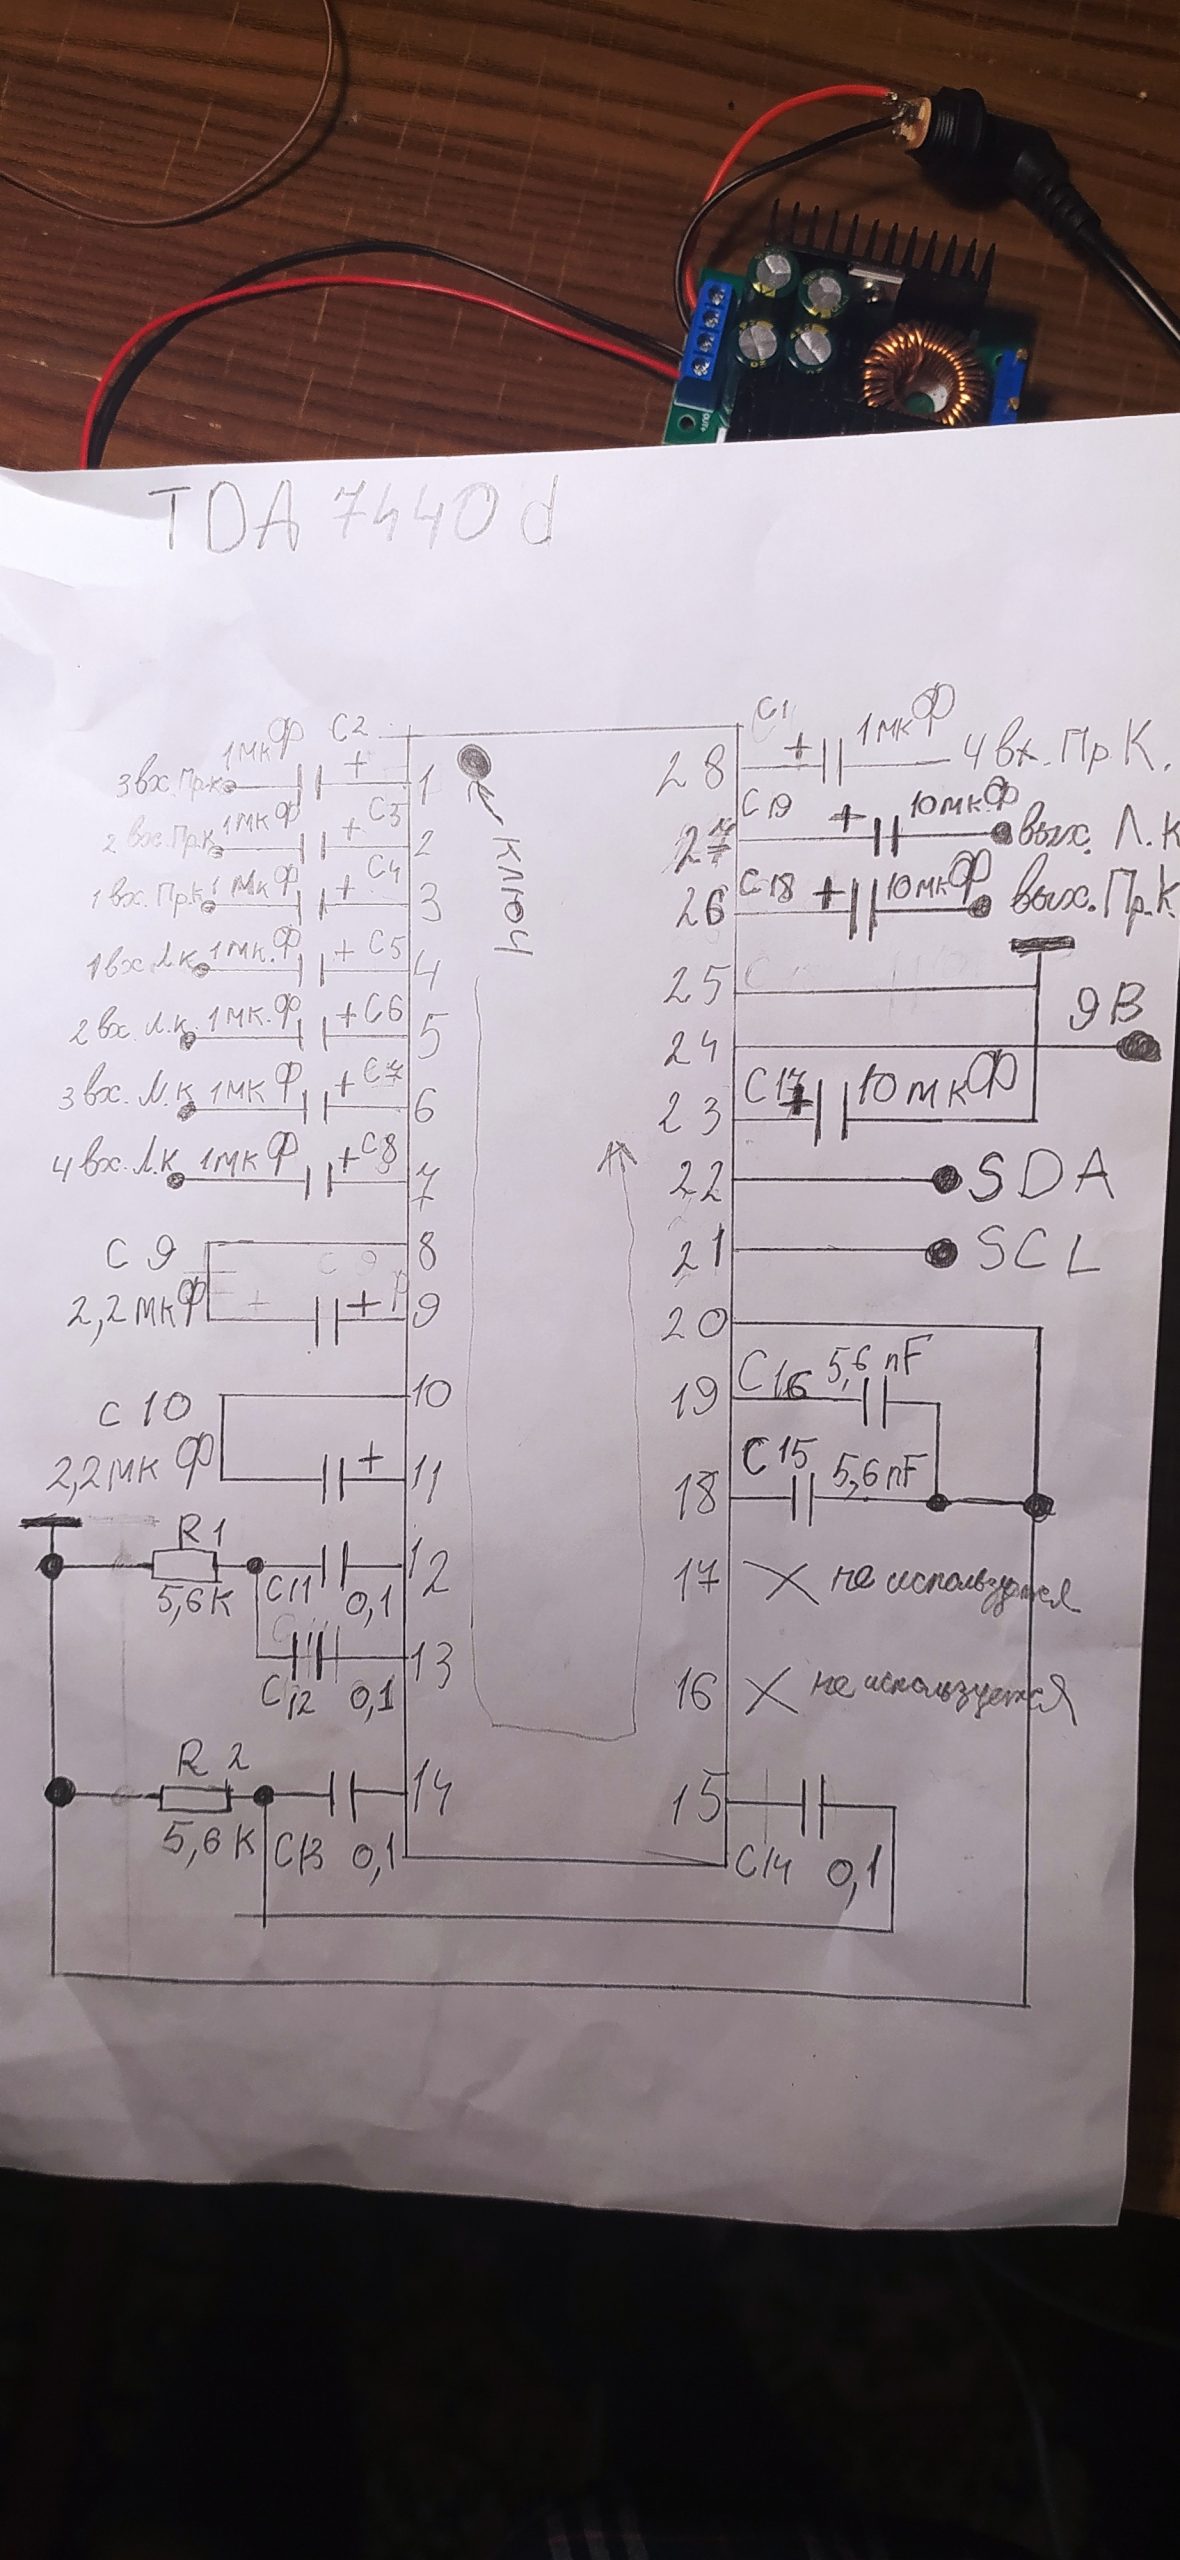 TDA 7440 d
C2
1мкФ
+
3 вх. Пр.К
1
C3
1мкФ
+
2 вх. Пр.К
2
C4
1мкФ
+
1 вх. Пр.К
3
C5
1мк.Ф
+
1 вх Л.К
4
C6
1мк.Ф
+
2 вх. Л.К.
5
C7
1мк Ф
+
3 вх. Л.К
6
C8
1мк Ф
+
4 вх. Л.К
7
C 9
8
2,2 мк Ф
+
9
C 10
10
2,2 мк Ф
+
11
R 1
5,6 К
C11
0,1
12
C12
0,1
13
R 2
5,6 К
C13
0,1
14
ключ
C1
1мкФ
28
+
4 вх. Пр.К.
C19
10мк.Ф
27
+
вых. Л.К
C18
10мкФ
26
+
вых. Пр.К
25
24
9В
C17
10 мкФ
23
+
22
SDA
21
SCL
20
C16
5,6 nF
19
C15
5,6 nF
18
17
не используется
16
не используется
15
C14
0,1
OUT+